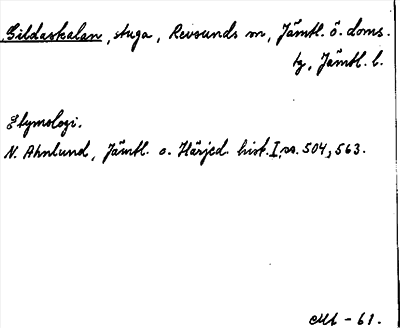 Gildaskalan, stuga, Revsunds sn, Jämtl. ö. doms.
tg, Jämtl. l.
Etymologi.
N. Ahnlund, Jämtl. o. Härjed. hist. I, ss. 504, 563.
- 61.